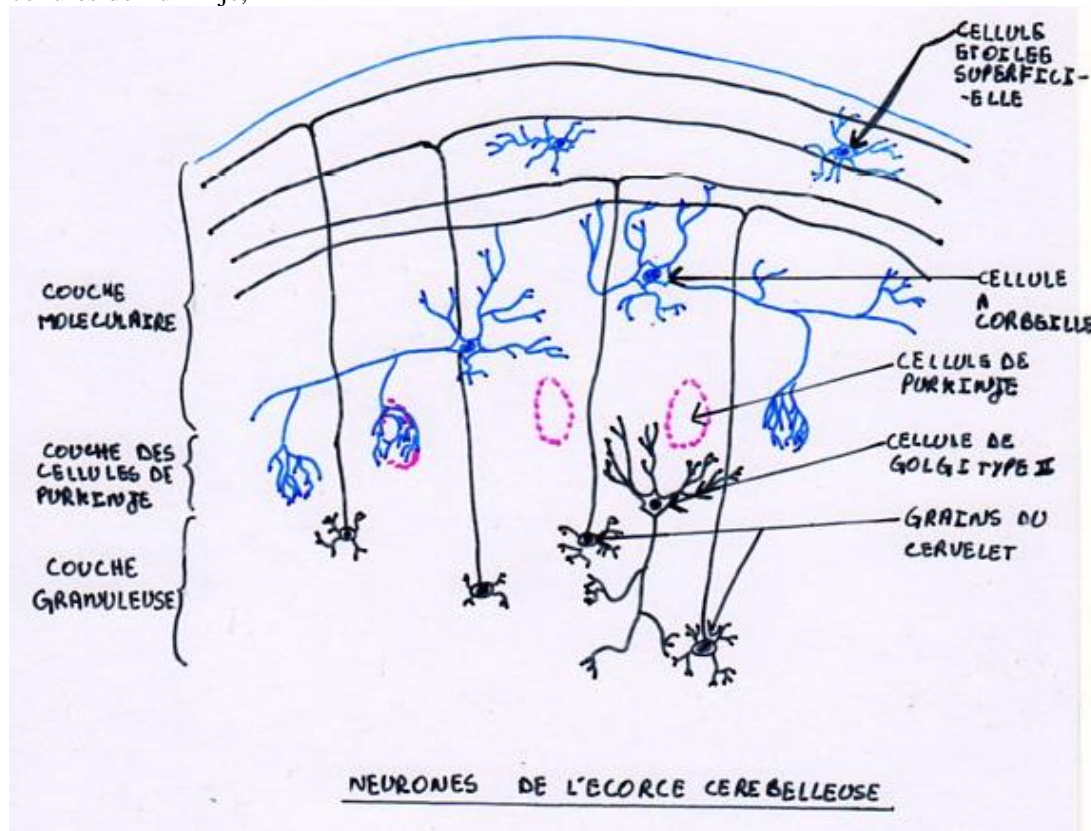 CELLULE
ETOILEE
SUPERFICI-
-ELLE
COUCHE
MOLECULAIRE
CELLULE
A
CORBEILLE
CELLULE DE
PURKINJE
COUCHE DES
CELLULES DE
PURKINJE
CELLULE DE
GOLGI TYPE II
GRAINS DU
CERVELET
COUCHE
GRANULEUSE
NEURONES DE L'ECORCE CEREBELLEUSE